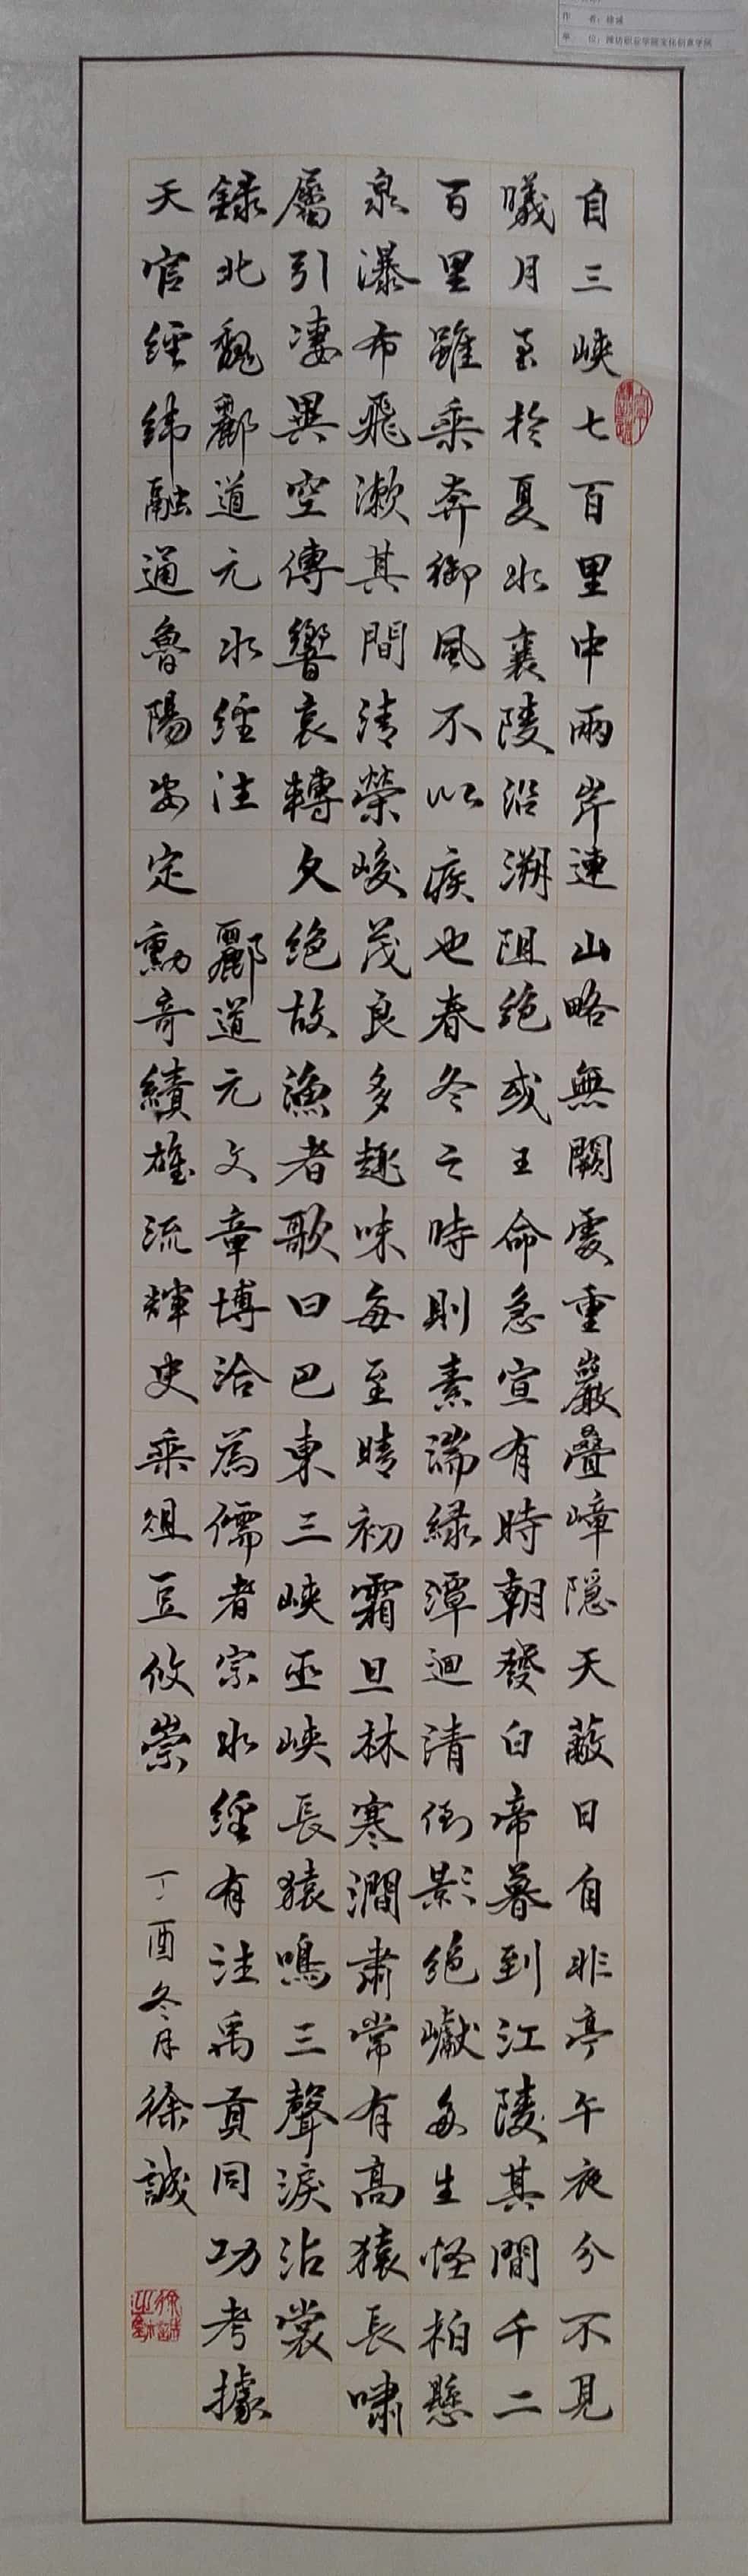 作 者：徐诚
单 位：潍坊职业学院文化创意学院
自三峽七百里中兩岸連山略無闕處重巖疊嶂隱天蔽日自非亭午夜分不見
曦月至於夏水襄陵沿溯阻絶或王命急宣有時朝發白帝暮到江陵其間千二
百里雖乘奔御風不以疾也春冬之時則素湍緑潭迴清倒影絶巘多生怪柏懸
泉瀑布飛漱其間清榮峻茂良多趣味每至晴初霜旦林寒澗肅常有高猿長嘯
屬引凄異空傳響哀轉久絶故漁者歌曰巴東三峽巫峽長猿鳴三聲淚沾裳
録北魏酈道元水經注 酈道元文章博洽為儒者宗水經有注禹貢同功考據
天官經緯融通魯陽安定勳奇績雄流輝史乘俎豆攸崇
丁酉冬月徐誠